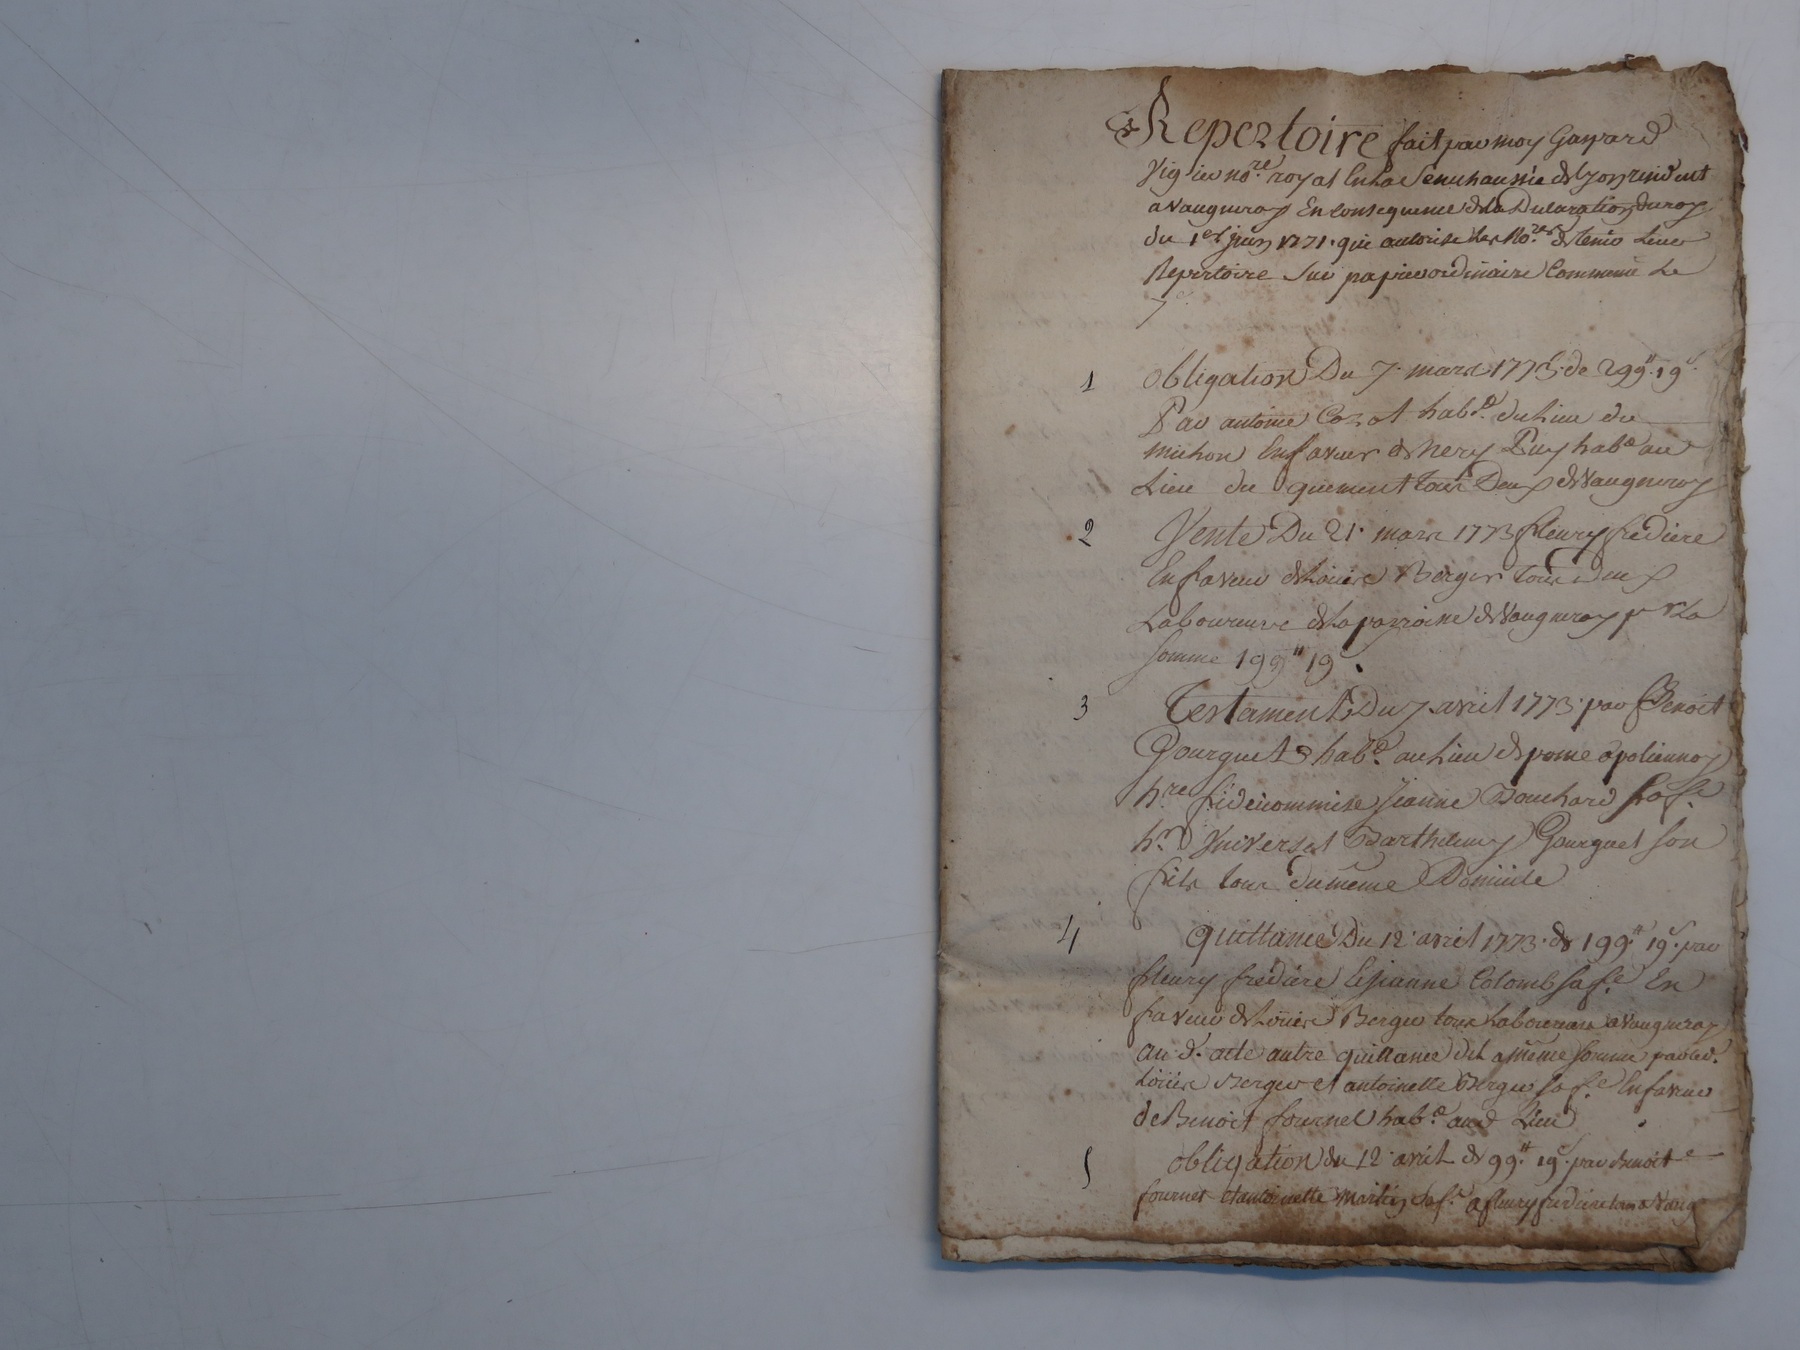 Repertoire fait par moy Gaspard
Vigier no.re royal En La Senechaussée de Lyon resident
a Vaugneray En consequence de la Declaration du roy
du 1er juin 1771. qui autorise les No.res de tenir Leur
Repertoire Sur papier ordinaire Commencé Le
7e
1 Obligation Du 7. mars 1773. de 299# 19s.
Par antoine hab.d du Lieu du
michon En faveur de Puy hab.d au
Lieu du tous Deux de Vaugneray
2 Vente Du 21. mars 1773 fleury fredière
En faveur de Loüis Berger tous Deux
Laboureurs de La parroisse de Vaugneray pr La
somme 199# 19.
3 Testament Du 7. avril 1773. par Benoit
Gourguet hab.d au Lieu de pome a polionnay
h.re fideicommise Jeanne Bouchard Sa f.e
h.er Universel Barthelemy Gourguet son
fils tous du même Domicile
4 Quittance Du 12. avril 1773. de 199.# 19s. par
fleury fredière Et jeanne Colomb sa f.e En
faveur de Loüis Berger tous Laboureurs a Vaugneray
au d. acte autre quittance de La même somme par led.
Loüis Berger et antoinette Berger sa f.e En faveur
de Benoit fournel hab.d aud Lieu
5 obligation du 12. avril de 99.# 19s. par Benoit
fournel et antoinette Martin Sa f.e a fleury fredière tous a Vaug